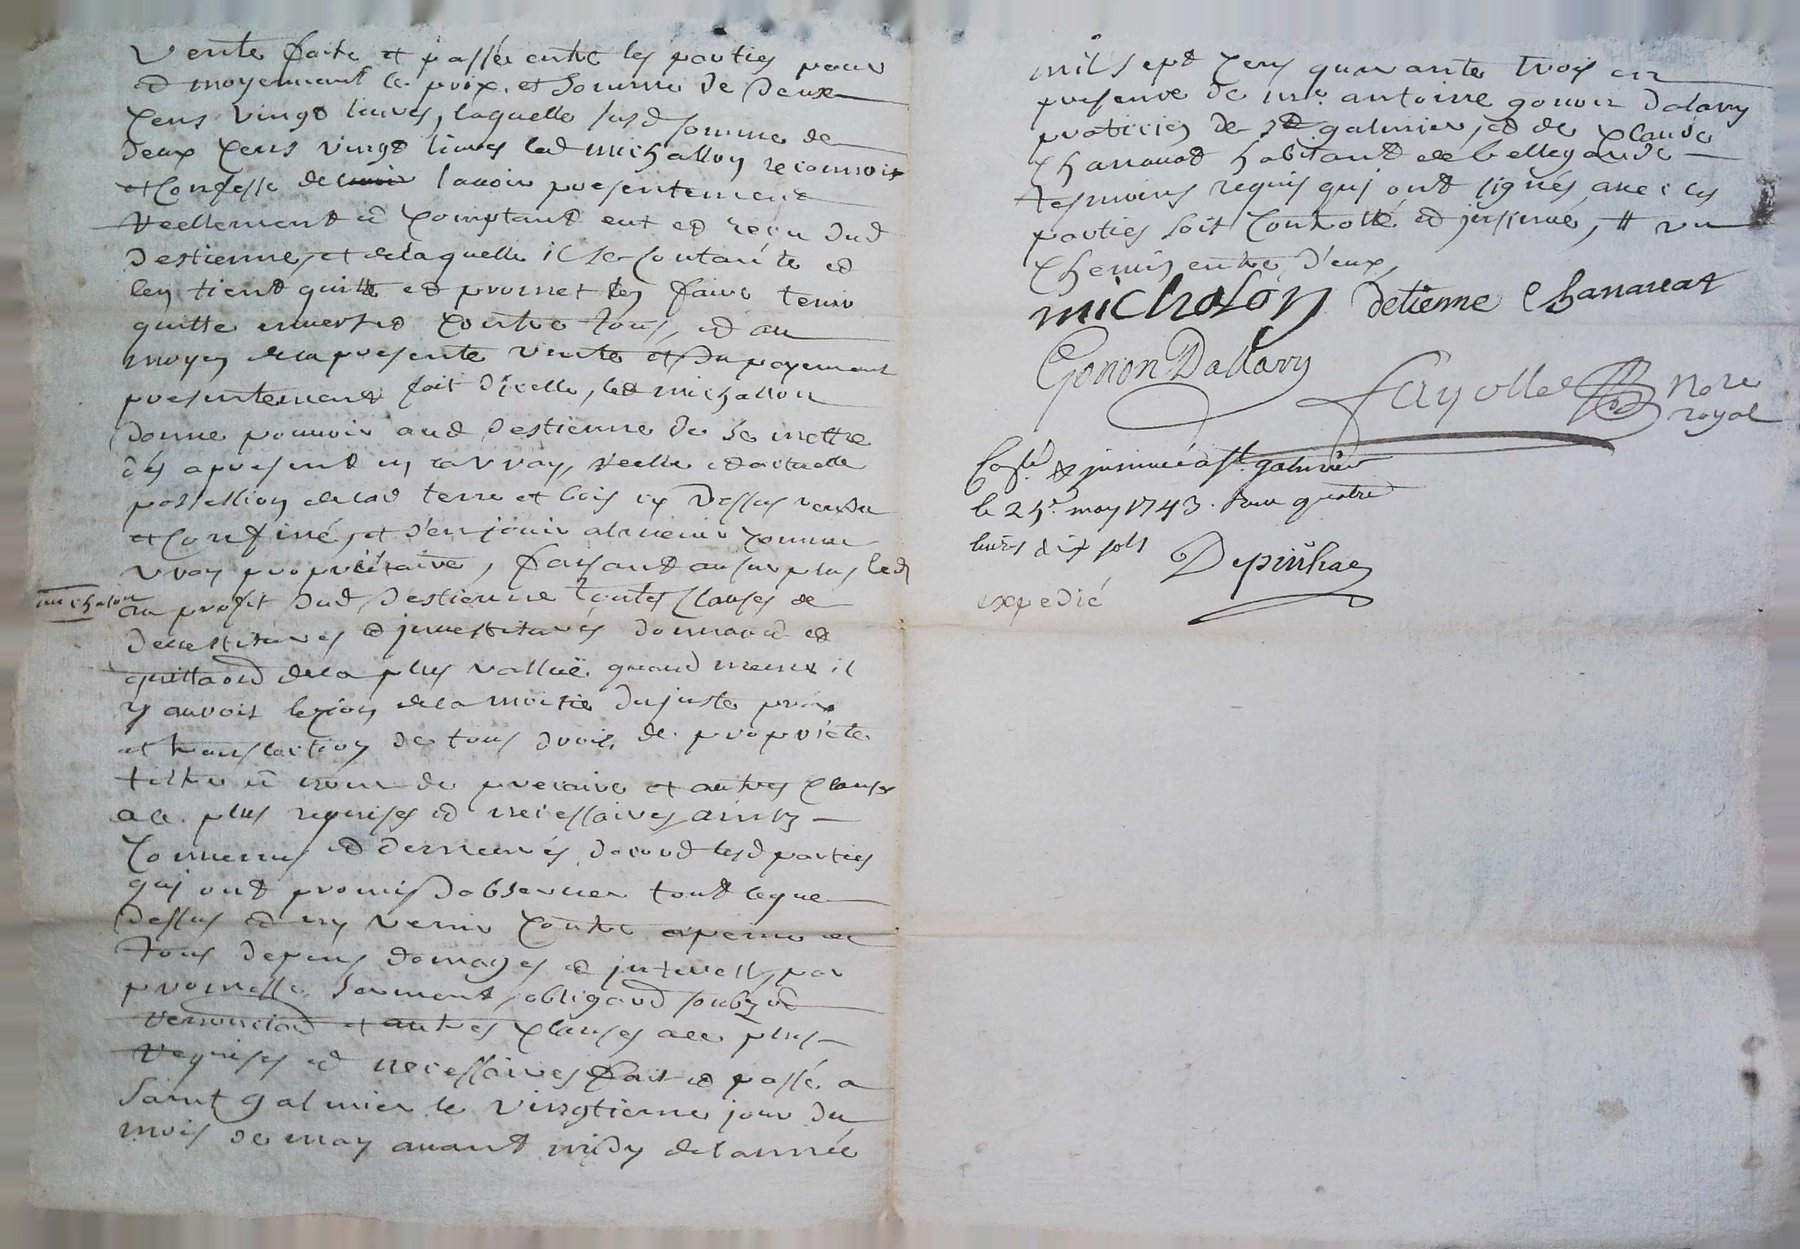 vente faite et passée entre les parties pour
et moyennant le prix et somme de deux
cens vingt livres, laquelle susd somme de
deux cens vingt livres led michallon reconnoit
et confesse de lavoir presentement
reellement et comptant eut et reçu dud
destienne, et de laquelle il se contante et
len tient quitte et promet len faire tenir
quitte envers et contre tous, et au
moyen de la presente vente et du payement
presentement fait dicelle, led michallon
donne pouvoir aud destienne de se mettre
des apresent en la vray, reelle et actuelle
possession de lad terre et bois cy dessus vendu
et confiné, et d'en jouir alavenir comme
vray proprietaire, faisant au surplus led
michalon
au profit dud destienne toutes clauses de
devestitures et jnvestitures donnant et
quittand de la plus valluë quand meme il
y auroit lezion de la moitié du juste prix
et translaction de tous droits de proprieté
titre et nom de precaire et autres clauses
ace plus requises et necessaires ainsy
convenus et demeurés dacord lesd parties
qui ont promis dobserver tout leque
dessus et ny venir contre apeine de
tous depens domages et jnterests, par
promesse, serment, obligaōn soubz et
renonciaōn et autres clauses ace plus
requises et necessaires fait et passé a
saint galmier le vingtieme jour du
mois de may avant midy de lannée
mil sept cens quarante trois en
presence de mre antoine gonon dalary
praticien de st galmier, et de claude
chanavat habitant de bellegarde
tesmoins requis qui ont signés avec les
parties soit controllé et jnsinué, # un
chemin entre d'eux,
micholon detienne Chanavat
Gonon Dallary
fayolle nore
royal
Conlé & jnsinué a St galmier
le 25e may 1743. Reçu quatre
livres dix sols
Depinhac
expedié